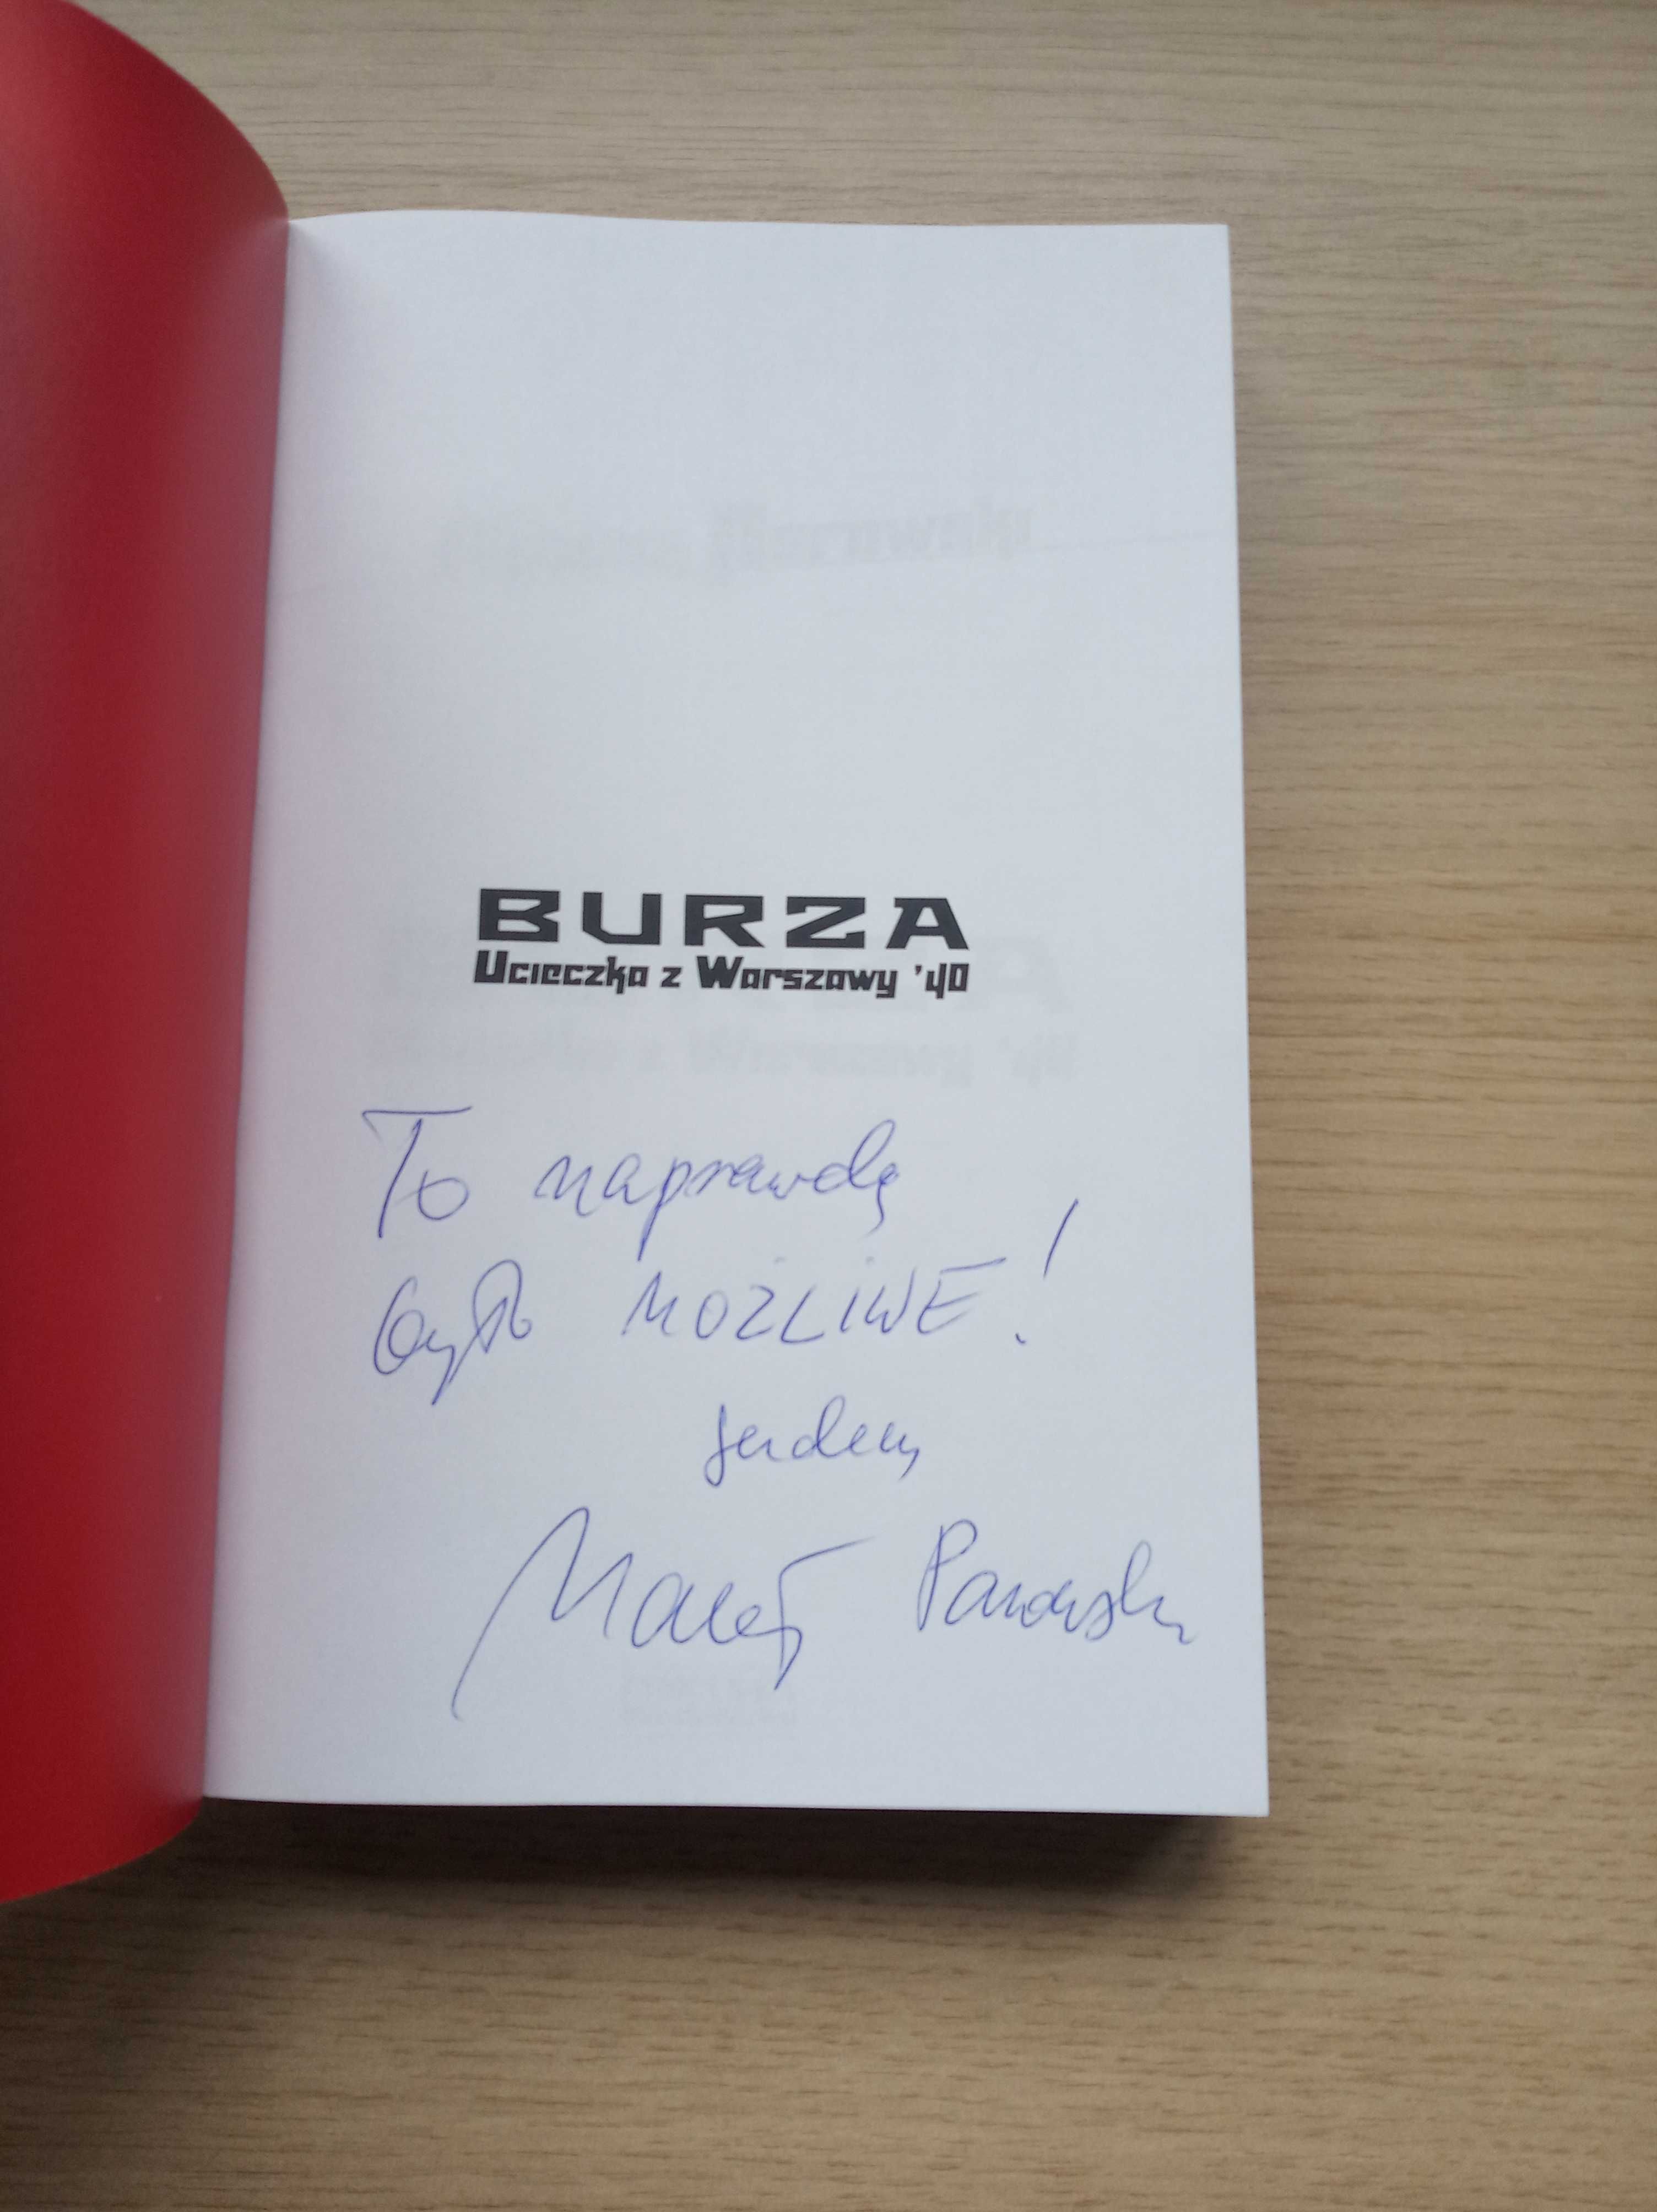 BURZA
Ucieczka z Warszawy '40
To naprawdę
było MOŻLIWE!
serdecz
Maciej Parowski